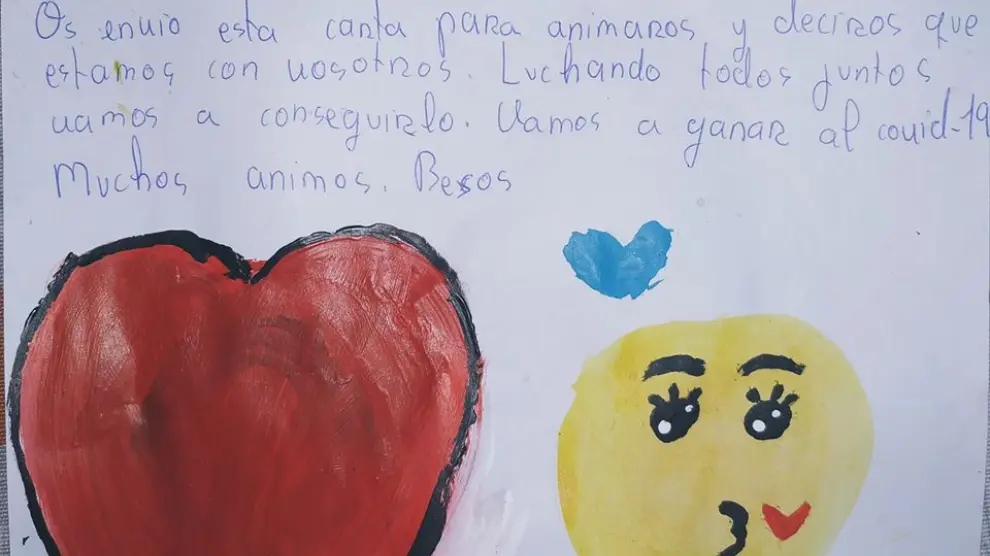 Os envio esta carta para animaros y deciros que
estamos con vosotros. Luchando todos juntos
vamos a conseguirlo. Vamos a ganar al covid-19
Muchos animos. Besos